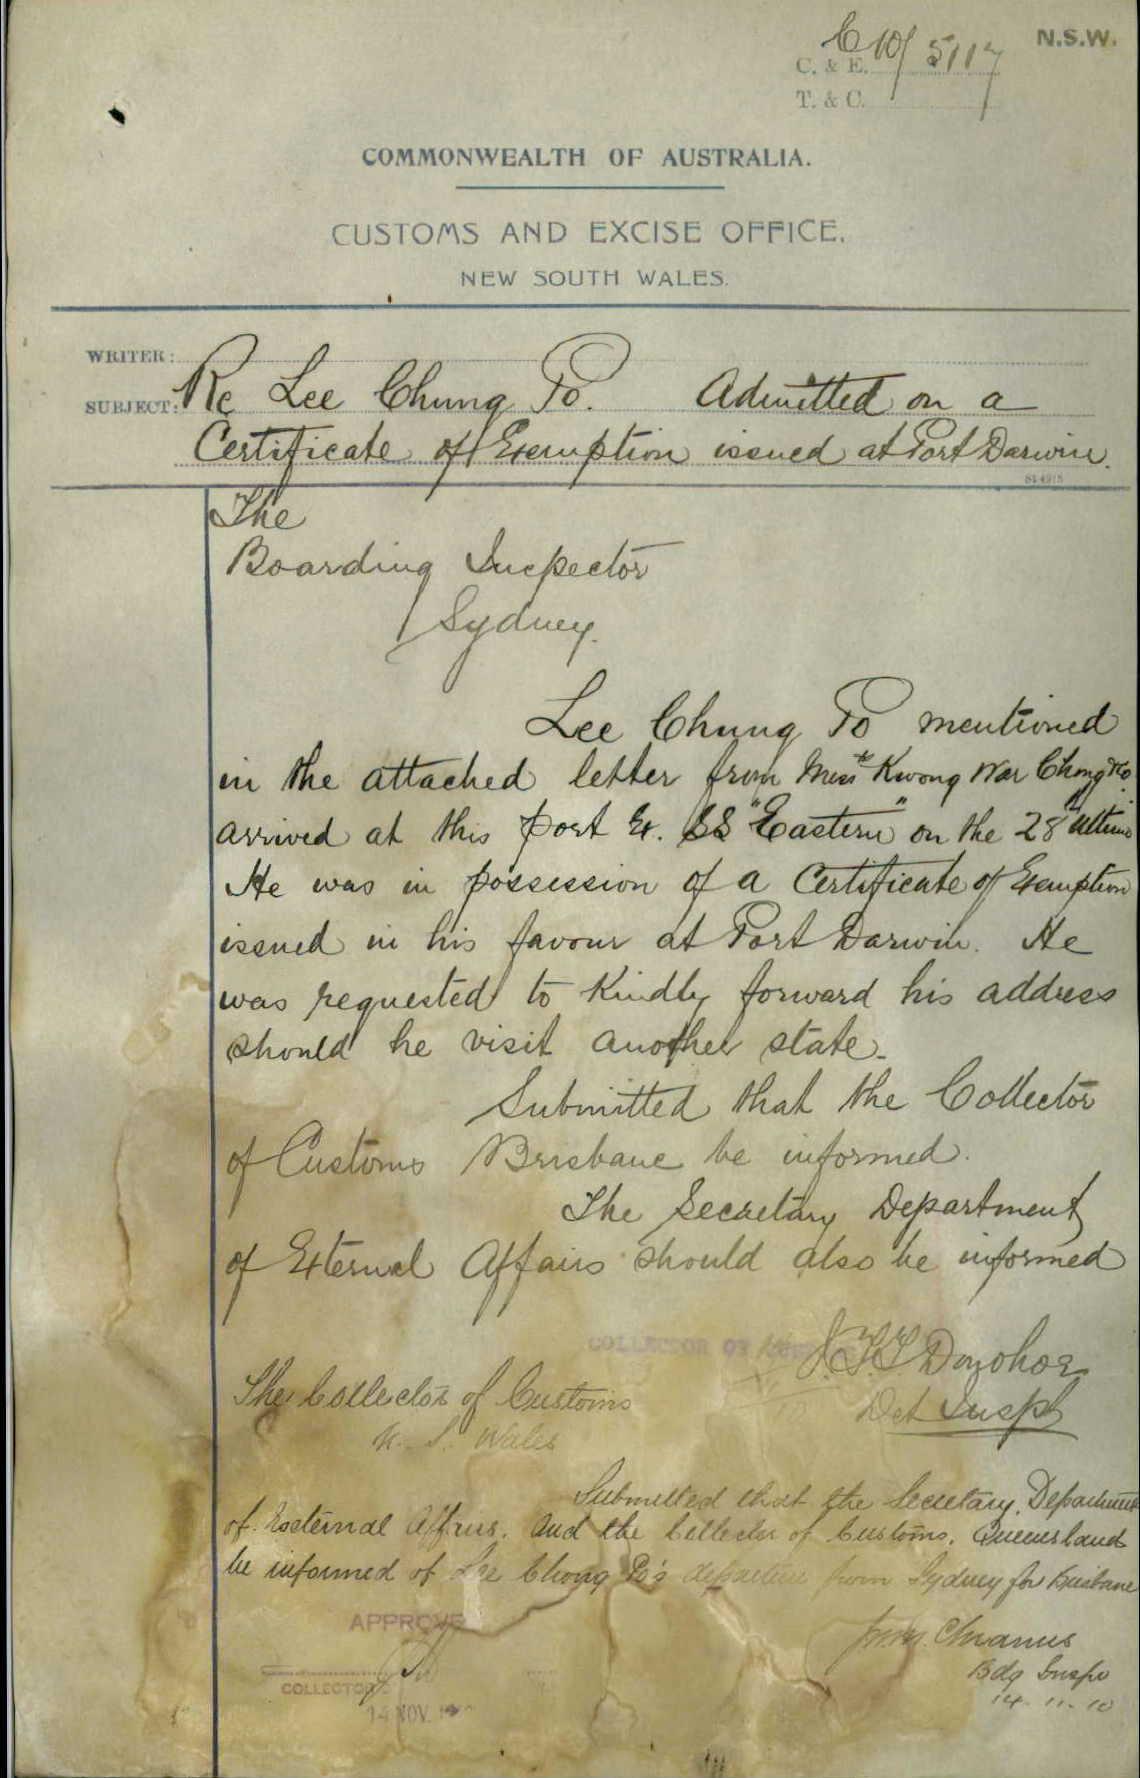 C10/5117
N.S.W.
C. & E.
T. & C.
COMMONWEALTH OF AUSTRALIA.
CUSTOMS AND EXCISE OFFICE.
NEW SOUTH WALES.
WRITER:
SUBJECT: Re Lee Chung Po. Admitted on a
Certificate of Exemption issued at Port Darwin.
The
Boarding Inspector
Sydney.
Lee Chung Po mentioned
in the attached letter from Messrs Kwong War Chong & Co.
arrived at this port Ex. SS "Eastern" on the 28th Ultimo
He was in possession of a Certificate of Exemption
issued in his favour at Port Darwin. He
was requested to Kindly forward his address
should he visit another state.
Submitted that the Collector
of Customs Brisbane be informed.
The Secretary Department
of External Affairs should also be informed
COLLECTOR OF
Donohoe
Det Inspr
The Collector of Customs
N. S. Wales
Submitted that the Secretary, Department
of External Affairs, and the Collector of Customs, Queensland
be informed of Lee Chong Po's departure from Sydney for Brisbane
APPROVED
Bdg Inspr
14.11.10
COLLECTOR
14 NOV.